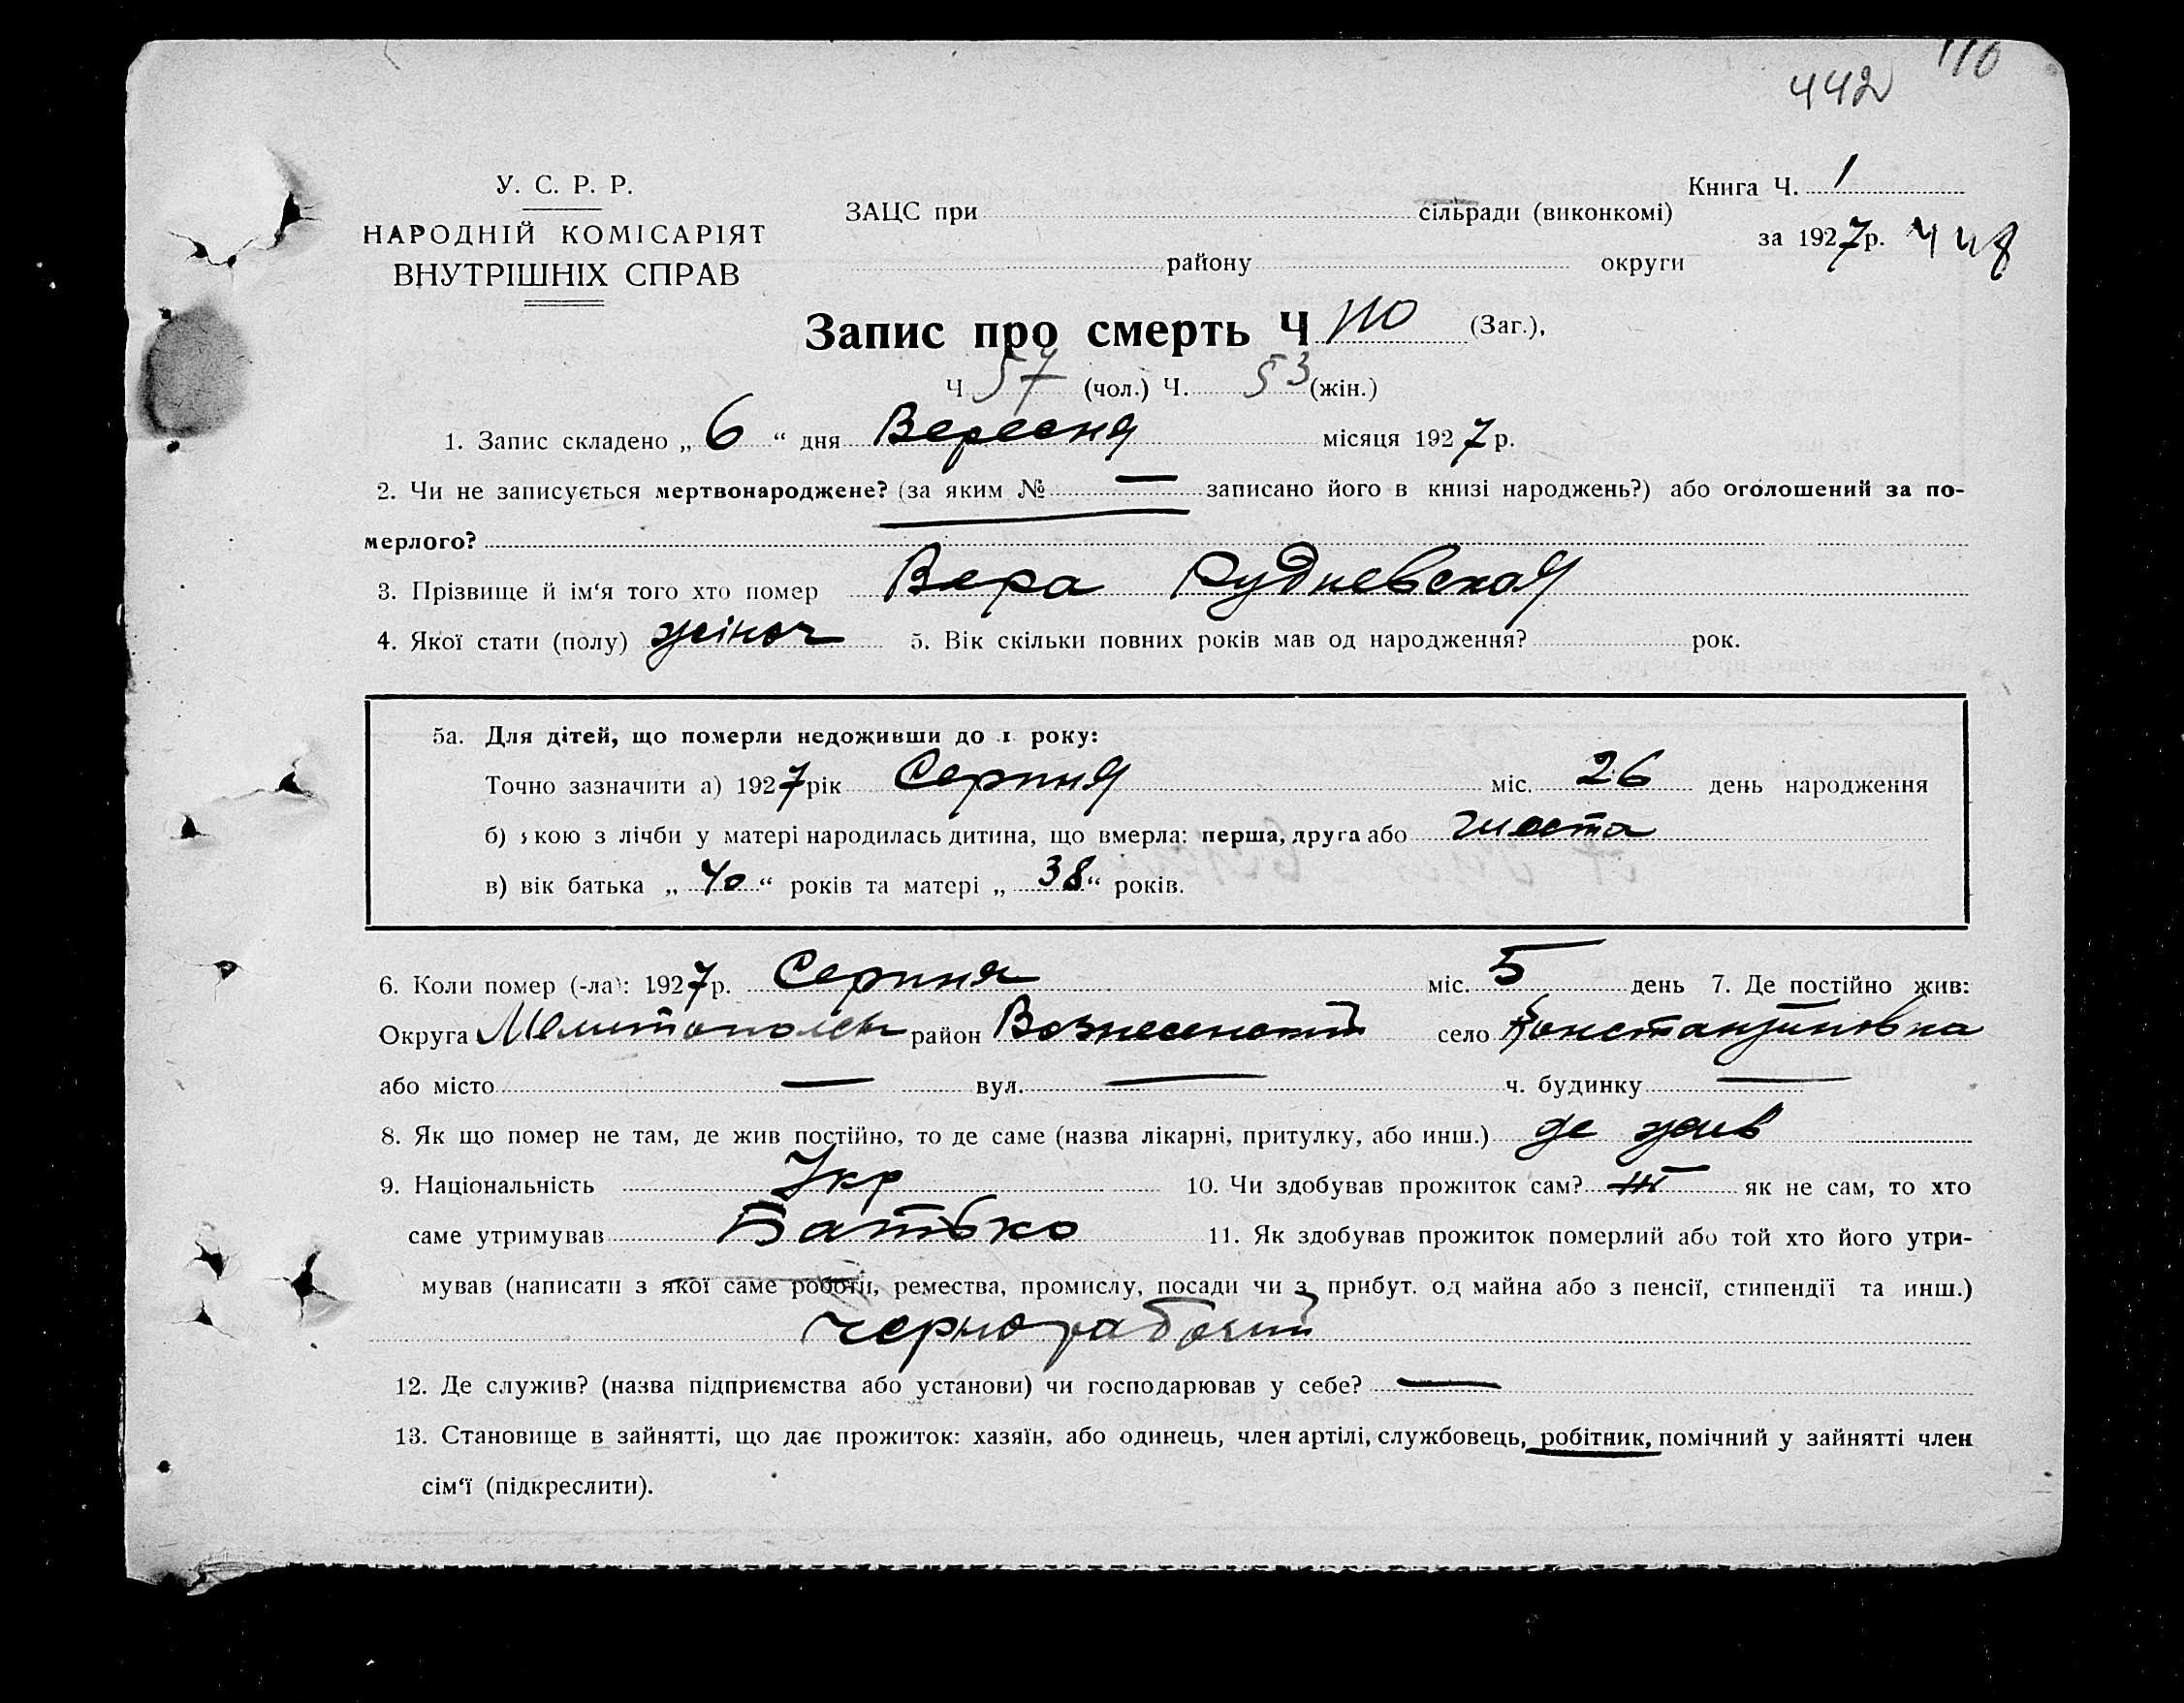 116
442
У. С. Р. Р.
НАРОДНІЙ КОМІСАРІЯТ
ВНУТРІШНІХ СПРАВ
Книга Ч. 1
ЗАЦС при сільради (виконкомі)
за 1927р. 448
району округи
Запис про смерть Ч 110 (Заг.),
Ч 57 (чол.) Ч. 53 (жін.)
1. Запис складено „ 6 “ дня Вересня місяця 1927 р.
2. Чи не записується мертвонароджене? (за яким № — записано його в книзі народжень?) або оголошений за по-
мерлого?
3. Прізвище й ім‘я того хто помер Вера Рудневская
4. Якої стати (полу) жіноч 5. Вік скільки повних років мав од народження? рок.
5а. Для дітей, що померли недоживши до 1 року:
Точно зазначити а) 1927 рік Серпня міс. 26 день народження
б) якою з лічби у матері народилась дитина, що вмерла: перша, друга або шоста
в) вік батька „ 40 “ років та матері „ 38 “ років.
6. Коли помер (-ла): 1927р. Серпня міс. 5 день 7. Де постійно жив:
Округа Мелитопольськ район Вознесенський село Константиновка
або місто — вул. — ч. будинку —
8. Як що помер не там, де жив постійно, то де саме (назва лікарні, притулку, або инш.) де жив
9. Національність Укр 10. Чи здобував прожиток сам? як не сам, то хто
саме утримував Батько 11. Як здобував прожиток померлий або той хто його утри-
мував (написати з якої саме роботи, ремества, промислу, посади чи з прибут. од майна або з пенсії, стипендії та инш.)
Чернорабочий
12. Де служив? (назва підприємства або установи) чи господарював у себе? —
13. Становище в зайнятті, що дає прожиток: хазяїн, або одинець, член артілі, службовець, робітник, помічний у зайнятті член
сім‘ї (підкреслити).